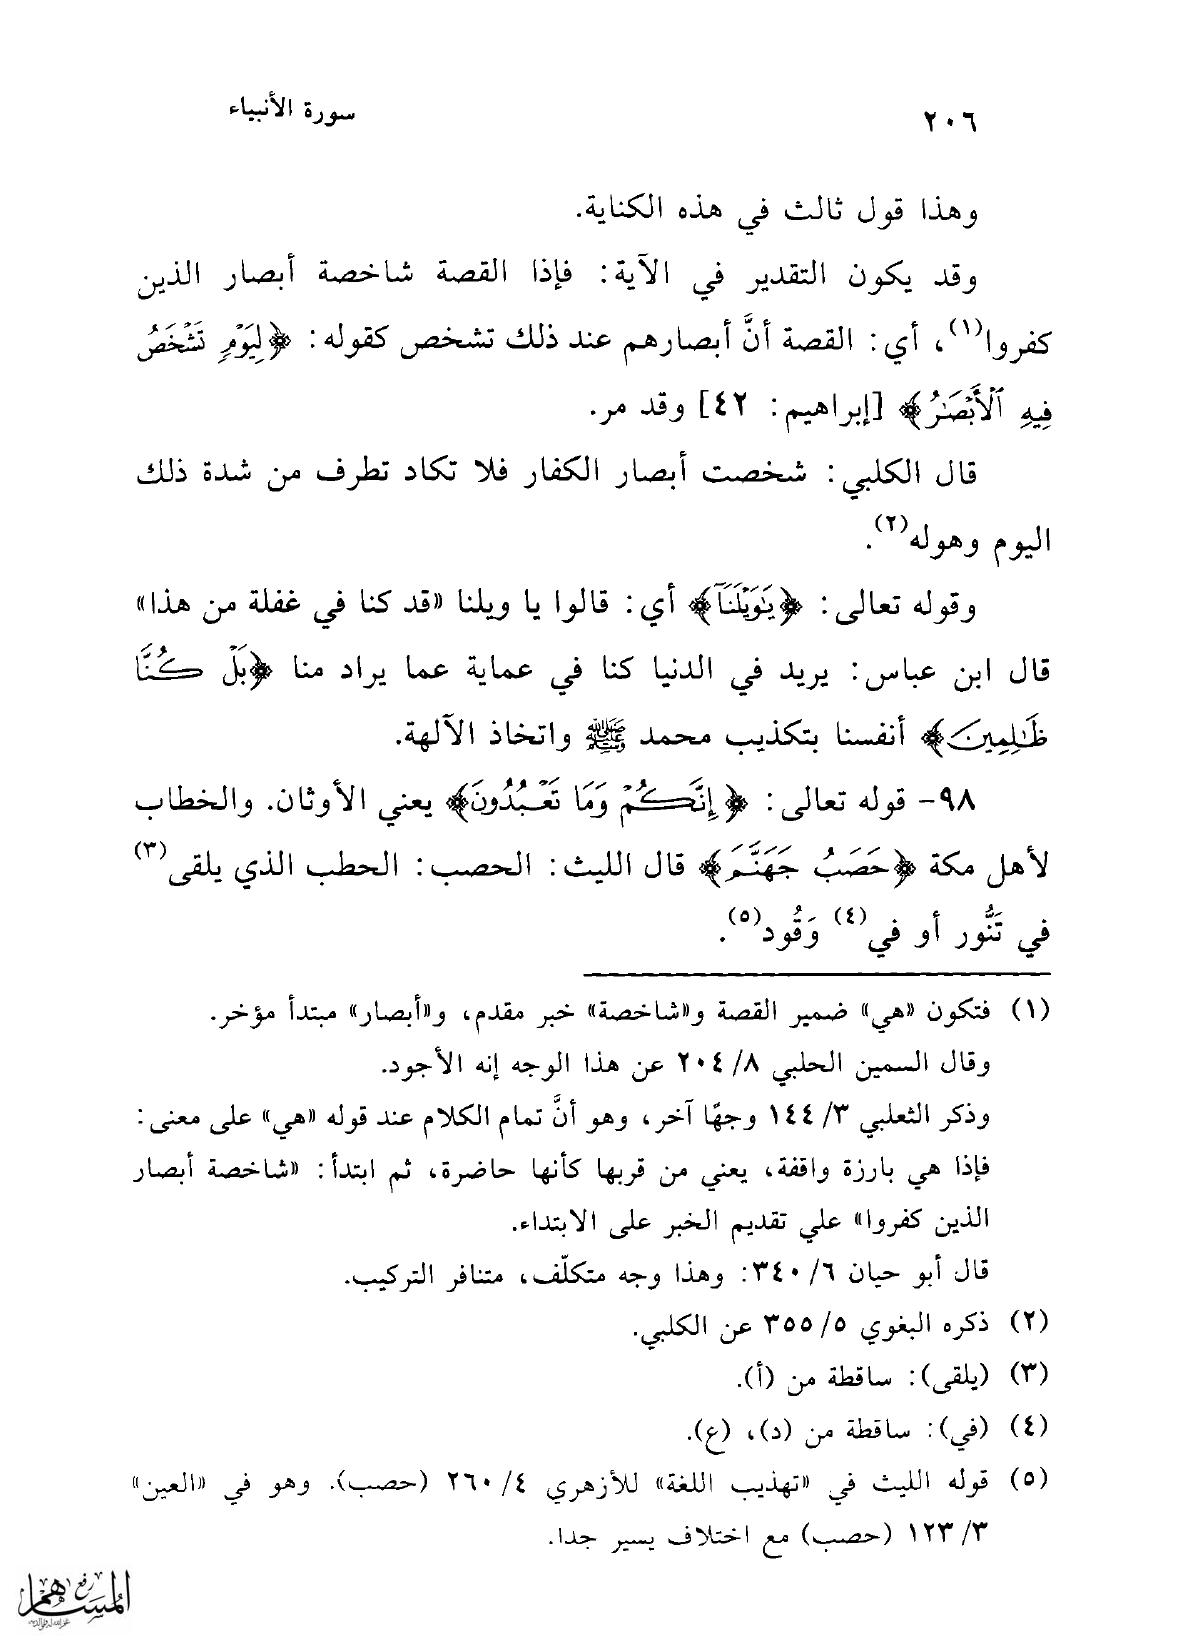 ٢٠٦ سورة الأنبياء
وهذا قول ثالث في هذه الكناية.
وقد يكون التقدير في الآية: فإذا القصة شاخصة أبصار الذين
كفروا(١)، أي: القصة أنَّ أبصارهم عند ذلك تشخص كقوله: ﴿لِيَوْمٍ تَشْخَصُ
فِيهِ الْأَبْصَٰرُ﴾ [إبراهيم: ٤٢] وقد مر.
قال الكلبي: شخصت أبصار الكفار فلا تكاد تطرف من شدة ذلك
اليوم وهوله(٢).
وقوله تعالى: ﴿يَٰوَيْلَنَآ﴾ أي: قالوا يا ويلنا «قد كنا في غفلة من هذا»
قال ابن عباس: يريد في الدنيا كنا في عماية عما يراد منا ﴿بَلْ كُنَّا
ظَٰلِمِينَ﴾ أنفسنا بتكذيب محمد ﷺ واتخاذ الآلهة.
٩٨- قوله تعالى: ﴿إِنَّكُمْ وَمَا تَعْبُدُونَ﴾ يعني الأوثان. والخطاب
لأهل مكة ﴿حَصَبُ جَهَنَّمَ﴾ قال الليث: الحصب: الحطب الذي يلقى(٣)
في تَنُّور أو في(٤) وَقُود(٥).
(١) فتكون «هي» ضمير القصة و«شاخصة» خبر مقدم، و«أبصار» مبتدأ مؤخر.
وقال السمين الحلبي ٨/ ٢٠٤ عن هذا الوجه إنه الأجود.
وذكر الثعلبي ٣/ ١٤٤ وجهًا آخر، وهو أنَّ تمام الكلام عند قوله «هي» على معنى:
فإذا هي بارزة واقفة، يعني من قربها كأنها حاضرة، ثم ابتدأ: «شاخصة أبصار
الذين كفروا» علي تقديم الخبر على الابتداء.
قال أبو حيان ٦/ ٣٤٠: وهذا وجه متكلّف، متنافر التركيب.
(٢) ذكره البغوي ٥/ ٣٥٥ عن الكلبي.
(٣) (يلقى): ساقطة من (أ).
(٤) (في): ساقطة من (د)، (ع).
(٥) قوله الليث في «تهذيب اللغة» للأزهري ٤/ ٢٦٠ (حصب). وهو في «العين»
٣/ ١٢٣ (حصب) مع اختلاف يسير جدا.